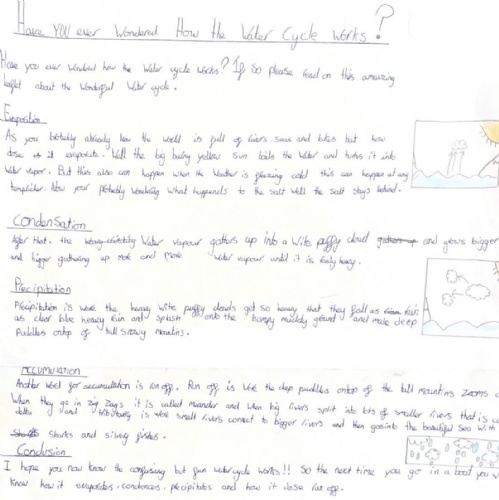 Have YOU ever Wondered How the Water Cycle Works?
Have you ever wondered how the Water cycle works? If so please read on this amazing
leaflet about the Wonderful Water cycle.
Evaporation
As you probably already know the world is full of rivers seas and lakes but how
dose it evaporate. Well the big buring yellow sun boils the water and turns it into
Water vapor. But this also can happen when the Weather is freezing cold this can happen at any
tempriture. Now your probably wondering what happends to the salt Well the salt stays behind.
Condensation
After that. the Water vapour gathers up into a Wite puffy cloud and grows bigger
and bigger gathering up more and more water vapour until it is realy heavy.
Precipitation
Precipitation is were the heavy wite puffy clouds get so heavy that they fall as rain
as clear blue heavy rain and splash onto the bumpy muddy ground and make deep
Puddles ontop of tall snowy mountins.
Accumulation
Another word for accumulation is run off. Run off is were the deep puddles ontop of the tall mountins zooms
When they go in zig zags it is called meander and when big rivers split into lots of smaller rivers that is
delta and tributary is were small rivers connect to bigger rivers and then gos into the beautiful Sea With
sharks and silvery fishes.
Conclusion
I hope you now know the confusing but fun watercycle works!! So the next time you go in a boat you
know how it evaporates, condences, precipitates and how it dose run off.